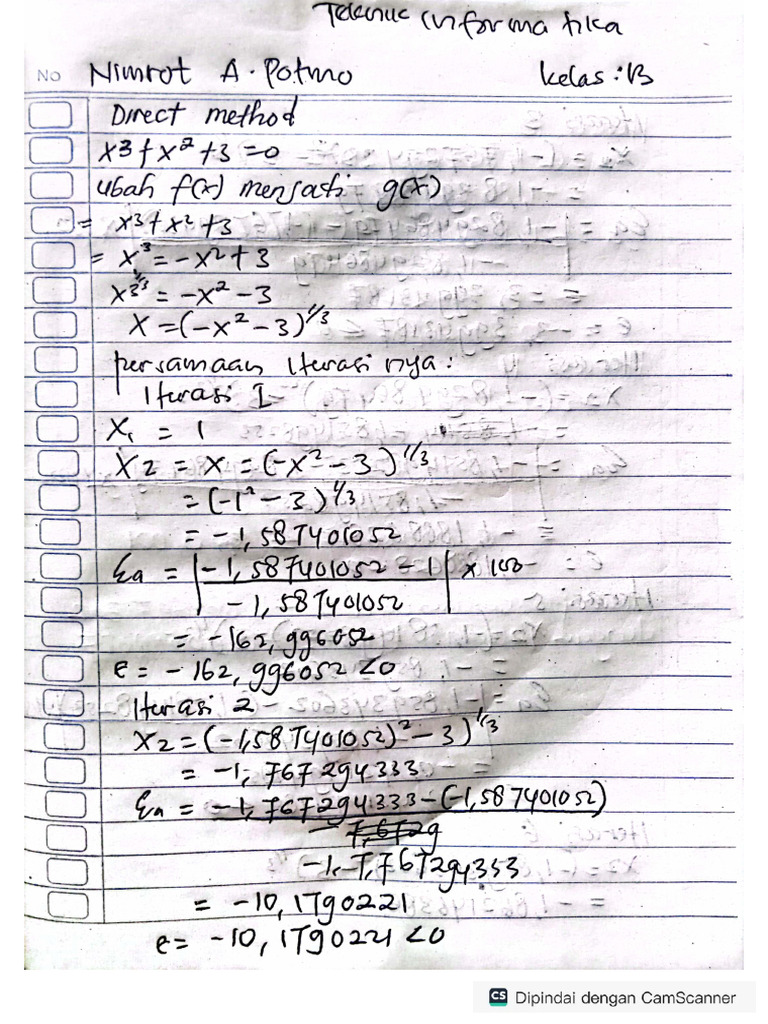 Teknik informatika
No Nimrot A. Potmo kelas : B
Direct method
x3 + x2 + 3 = 0
ubah f(x) menjadi g(x)
= x3 + x2 + 3
= x3 = -x2 + 3
x3 1/3 = -x2 - 3
x = (-x2 - 3)1/3
persamaan Iterasi nya :
Iterasi I
X1 = 1
X2 = x = (-x2 - 3)1/3
= (-12 - 3)1/3
= -1,587401052
Ea = |-1,587401052 - 1| x 100
-1,587401052
= -162,996052
e = -162,996052 <0
Iterasi 2
X2 = (-1,587401052)2 - 3)1/3
= -1,767294333
Ea = -1,767294333-(-1,587401052)
= -10,1790221
e = -10,1790221 <0
CS Dipindai dengan CamScanner